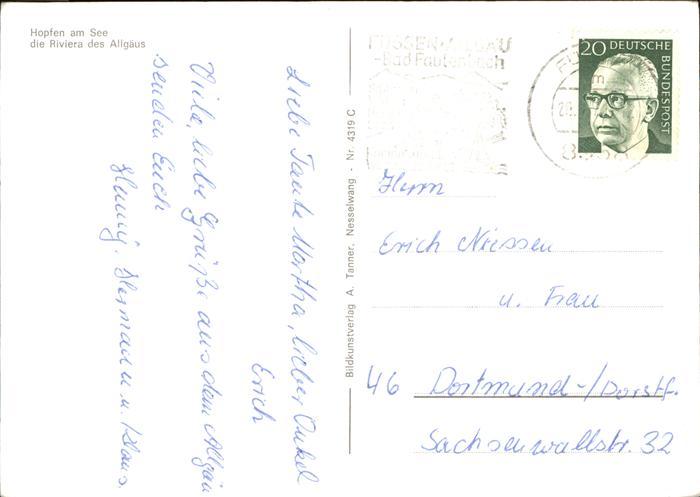 Hopfen am See
die Riviera des Allgäus
Liebe Tante Martha, lieber Onkel
Erich
Viele, liebe Grüße aus dem Allgäu
senden Euch
Hermann u. Klaus.
Bildkunstverlag A. Tanner, Nesselwang - Nr. 4319 C
FÜSSEN-ALLGÄU
-Bad Faulenbach
20 DEUTSCHE
BUNDESPOST
Herrn
Erich Niessen
u. Frau
46 Dortmund-/Dorstf.
Sachsenwaldstr. 32